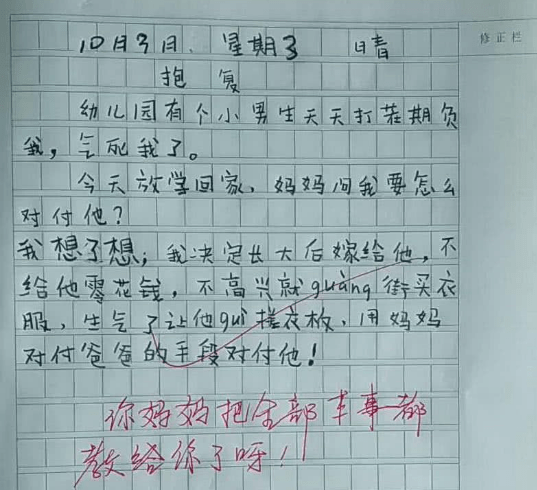 修正栏
10月3日、星期3 晴
抱复
幼儿园有个小男生天天打荐期负
我，气死我了。
今天放学回家、妈妈问我要怎么
对付他？
我想了想，我决定长大后嫁给他，不
给他零花钱，不高兴就guàng街买衣
服、生气了让他guì搓衣板、用妈妈
对付爸爸的手段对付他！
你妈妈把全部本事都
教给你了呀！